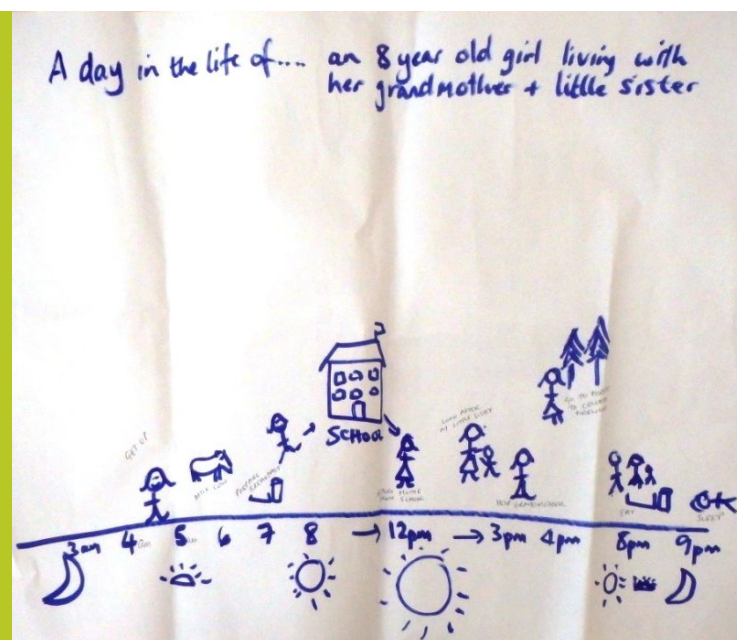 A day in the life of.... an 8 year old girl living with
her grandmother + little sister
GET UP
MILK COW
PREPARE
BREAKFAST
SCHOOL
LOOK AFTER
MY LITTLE SISTER
HELP GRANDMOTHER
GO TO FOREST
TO COLLECT
FIREWOOD
EAT
SLEEP
3am 4 5 6 7 8 → 12pm → 3pm 4pm 8pm 9pm